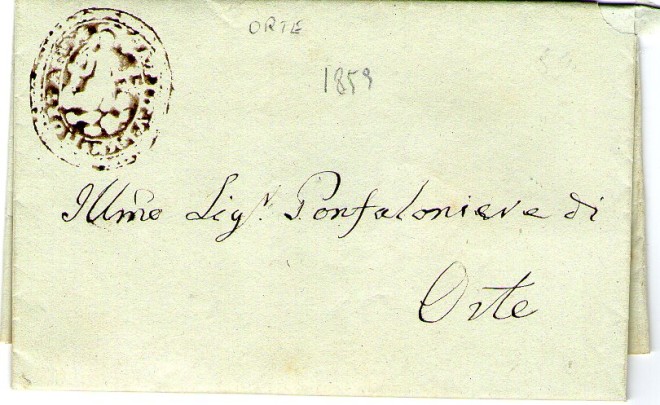 ORTE
1859
Illmo Sigr. Gonfaloniere di
Orte